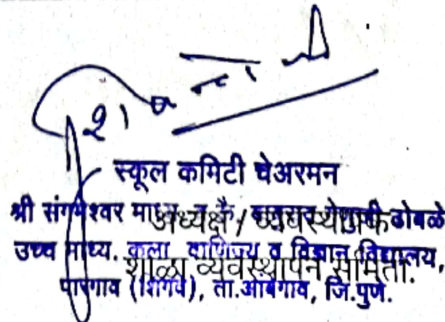 स्कूल कमिटी चेअरमन
श्री संगमेश्वर माध्य. व कै.
अध्यक्ष / व्यवस्थापक
ढोबळे
उच्च माध्य. कला, वाणिज्य व विज्ञान विद्यालय,
शाळा व्यवस्थापन समिती.
पारगाव (शिंगवे), ता.आंबेगाव, जि.पुणे.